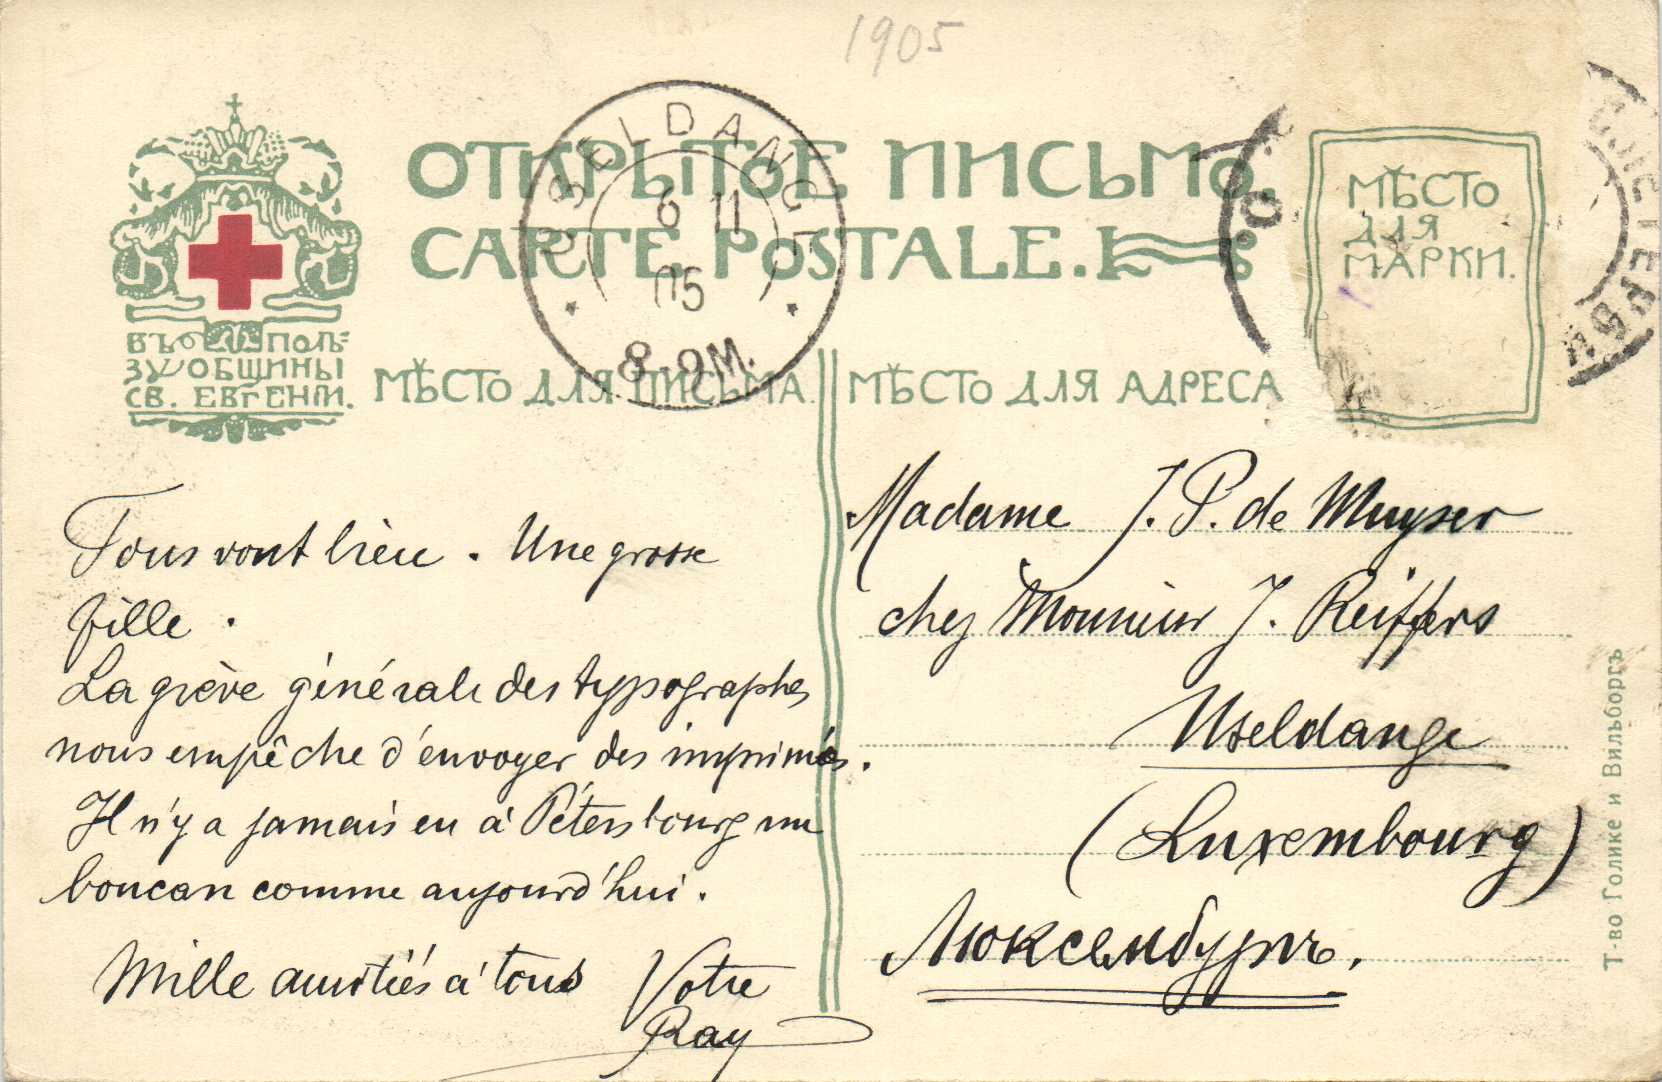 1905
ОТКРЫТОЕ ПИСЬМО.
CARTE POSTALE.
USELDANGE
6 11
05
8-9M.
С.ПЕТЕРБУ
МѢСТО
ДЛЯ
МАРКИ.
ВЪ ПОЛЬ=
ЗУ ОБЩИНЫ
СВ. ЕВГЕНІИ.
МѢСТО ДЛЯ ПИСЬМА.
МѢСТО ДЛЯ АДРЕСА
Tous vont bien. Une grosse
fille.
La grève générale des typographes
nous empêche d'envoyer des imprimés.
Il n'y a jamais eu à Pétersbourg un
boucan comme aujourd'hui.
Mille amitiés à tous Votre
Ray
Madame J. P. de Muyser
chez Monsieur J. Reiffers
Useldange
(Luxembourg)
Люксембургъ.
Т-во Голике и Вильборгъ